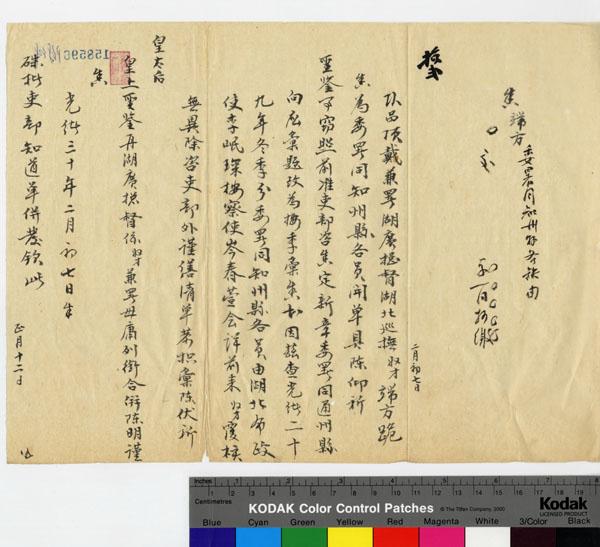 奏 端方 委署同知州縣各缺由
二月初七日
頭品頂戴兼署湖廣總督湖北巡撫奴才端方跪
奏為委署同知州縣各員開單具陳仰祈
聖鑒事竊照前准吏部咨奏定新章委署同通州縣
向應彙題改為按季彙奏等因茲查光緒二十
九年冬季分委署同知州縣各員由湖北布政
使李岷琛按察使岑春蓂會詳前來奴才覆核
無異除咨吏部外謹繕清單恭摺彙陳伏祈
皇太后
皇上聖鑒再湖廣總督係奴才兼署毋庸列銜合併陳明謹
奏
光緒三十年二月初七日奉
硃批吏部知道單併發欽此
正月十二日
158596
Inches
Centimetres
KODAK Color Control Patches
© The Tiffen Company, 2000
Kodak
LICENSED PRODUCT
Blue Cyan Green Yellow Red Magenta White 3/Color Black